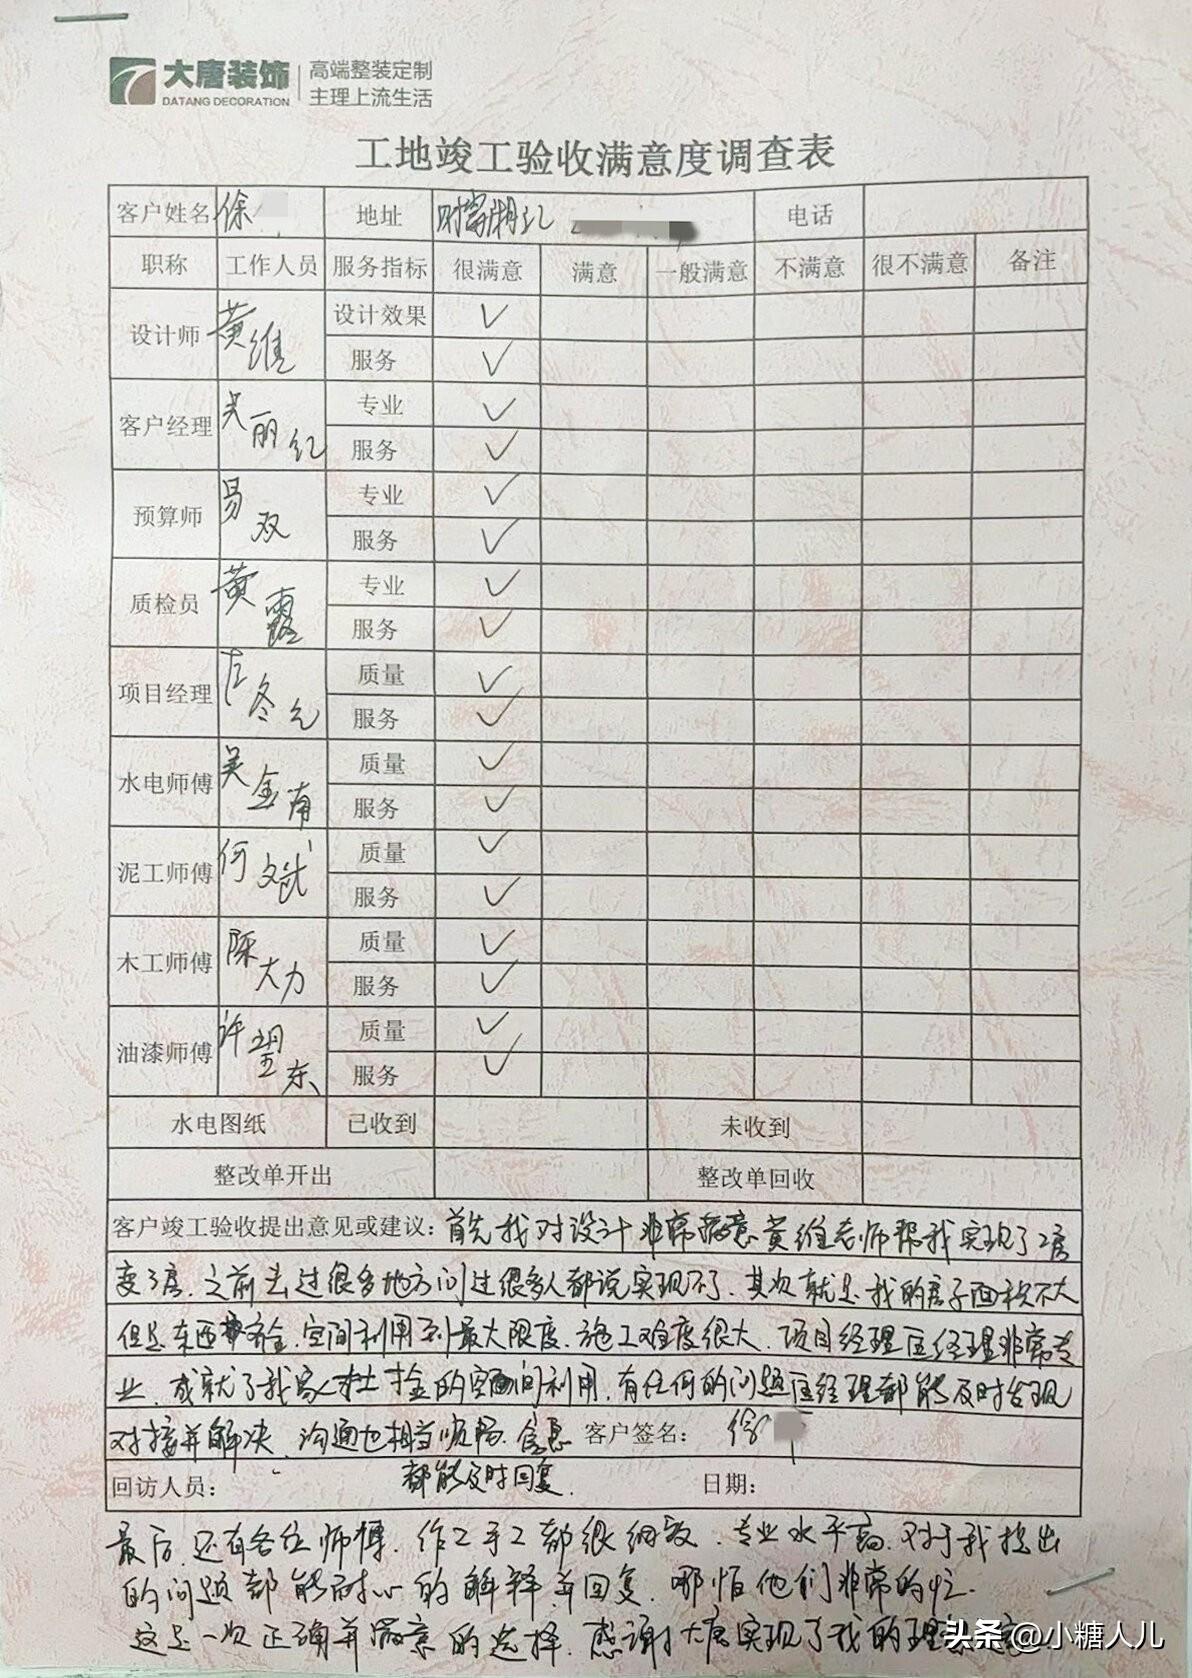 大唐装饰 高端整装定制
DATANG DECORATION 主理上流生活
工地竣工验收满意度调查表
客户姓名 徐 地址 财富湘江 电话
职称 工作人员 服务指标 很满意 满意 一般满意 不满意 很不满意 备注
设计师 黄维 设计效果 ✓
服务 ✓
客户经理 丽红 专业 ✓
服务 ✓
预算师 易双 专业 ✓
服务 ✓
质检员 黄霞 专业 ✓
服务 ✓
项目经理 匡冬元 质量 ✓
服务 ✓
水电师傅 吴金南 质量 ✓
服务 ✓
泥工师傅 何文武 质量 ✓
服务 ✓
木工师傅 陈大力 质量 ✓
服务 ✓
油漆师傅 许望东 质量 ✓
服务 ✓
水电图纸 已收到 未收到
整改单开出 整改单回收
客户竣工验收提出意见或建议：首先我对设计非常满意黄维老师帮我实现了2房
变3房，之前去过很多地方问过很多人都说实现不了，其次就是我的房子面积不大
但是东西齐全，空间利用到最大限度，施工难度很大，项目经理匡经理非常专
业，成就了我家的空间利用，有任何的问题匡经理都能及时发现
对接并解决，沟通也相当顺畅，信息 客户签名： 徐
都能及时回复.
回访人员： 日期：
最后，还有各位师傅，作工手工都很细致，专业水平高，对于我提出
的问题都能耐心的解释并回复，哪怕他们非常的忙.
这是一次正确并满意的选择，感谢大唐实现了我的理
头条 @小糖人儿